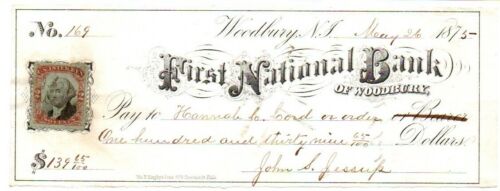 No. 169 Woodbury, N.J. May 26 1875
First National Bank
OF WOODBURY,
Pay to Hannah C. Cord or order or Bearer
One hundred and thirty nine 65/100 Dollars.
$139 65/100 John S. Jessup